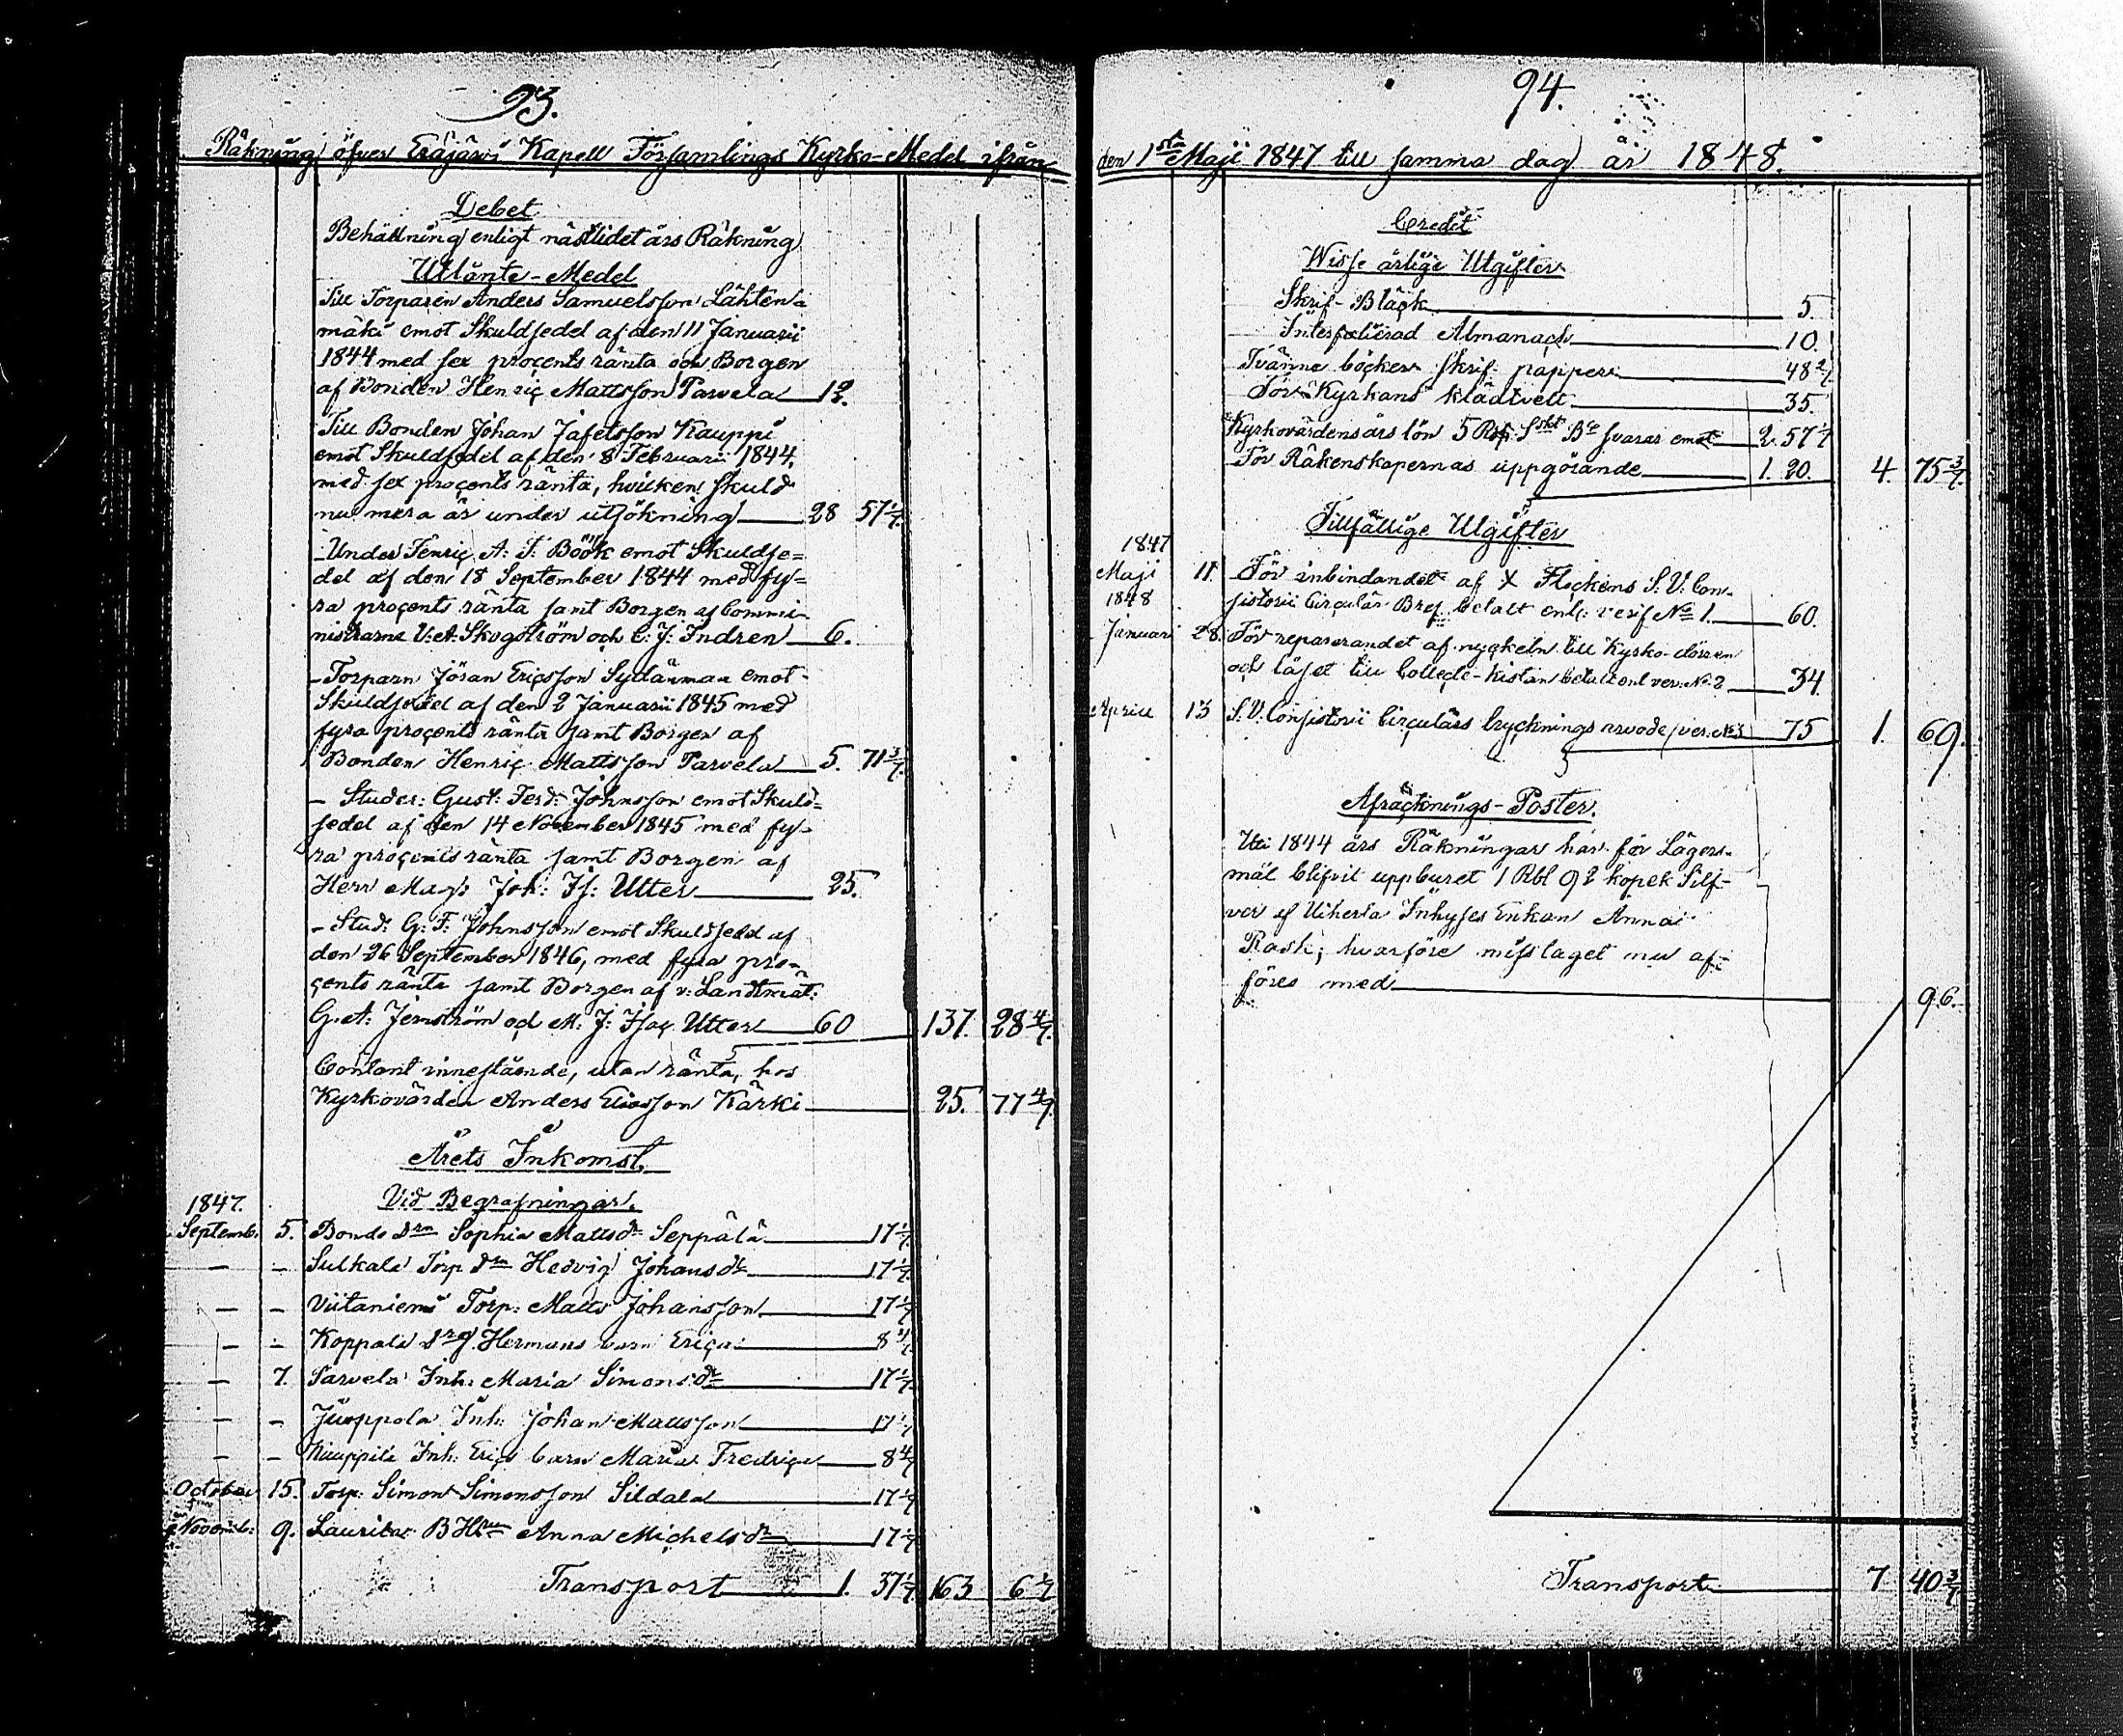 93.
Räkning öfver Eräjärvi Kapell Församlings Kyrko-Medel ifrån
Debet
Behållning enligt nästlidet års Räkning
Utlånte-Medel
Till Torparen Anders Samuelsson Lähten-
mäki emot Skuldsedel af den 11 Januarii
1844 med sex proçents ränta och Borgen
af Bonden Henriç Mattsson Parvela 12.
Till Bonden Johan Jafetsson Kauppi
emot Skuldsedel af den 8 Februarii 1844,
med sex proçents ränta, hvilken skuld
nu mera är under utsökning 28 57 1/7.
Under Fenriç A: F: Böök emot Skuldse=
del af den 18 September 1844 med fy=
ra proçents ränta samt Borgen af Commi-
nistrarne V: A: Skogström och C: J: Indren 6.
- Torparn Jöran Ericsson Sydänmaa emot
Skuldsedel af den 2 Januarii 1845 med
fyra proçents ränta samt Borgen af
Bonden Henriç Mattsson Parvela 5. 71 3/7.
- Studer: Gust: Ferd: Johnsson emot Skuld=
sedel af den 14 November 1845 med fy=
ra proçents ränta samt Borgen af
Herr Mag: Joh: Is: Utter 25.
- Stud: G: F: Johnsson emot Skuldsedel af
den 26 September 1846, med fyra pro-
çents ränta samt Borgen af v: Landtmät:
G: A: Jernström och M: J: Isaç Utter 60 137. 28 4/7.
Contant innestående, utan ränta, hos
Kyrkovärden Anders Ericsson Kärki 25. 77 4/7.
Årets Inkomst.
Vid Begrafningar.
1847.
Septemb: 5. Bonde Drn Sophia Mattsdr Seppälä 17 1/7.
- - Sulkala Torp drn Hedvig Johansdr 17 1/7.
- - Viitaniemi Torp: Matts Johansson 17 1/7
- - Koppala drg Hermans barn Eriça 8 4/7
- 7. Parvela Inh: Maria Simonsdr 17 1/7
- - Inh: Johan Mattsson 17 1/7
- - Inh: Eriçs barn Maria Fredriça 8 4/7
October 15. Torp: Simon Simonsson Sildala 17 1/7
Novemb: 9. Laurila B Anna Michelsdr 17 1/7
Transport 1. 37 1/7. 163 6 1/7
94.
den 1sta Maji 1847 till samma dag år 1848.
Credit
Wisse årlige Utgifter
Skrif-Bläck 5
Interfolierad Almanach 10.
Tvänne böcker skrif papper 48 2/7.
För Kyrkans klädtvett 35.
Kyrkovärdens års lön 5 Rbl Bco svarar emot 2. 57 1/7
För Räkenskapernas uppgörande 1. 20. 4. 75 3/7.
Tillfällige Utgifter
1847
Maji 11. För inbindandet af Flockens S. V. Con-
1848
sistorii Circulär Bref betalt enl: verif No 1. 60.
Januari 28. För reparerandet af nyckeln till Kyrko-dörren
och låset till Collect-kistan betalt enl ver: No 2 34
Aprill 13 S. V. Consistorii Circulärs tryçknings arvode (ver: No 3 75 1. 69.
Afräcknings-Poster.
Uti 1844 års Räkningar har för Lägers-
mål blifvit uppburet 1 Rbl 92 kopek Silf-
ver af Uiherla Inhyses Enkan Anna
Rask; hvarföre misstaget nu af-
föres med 96.
Transport 7 40 3/7